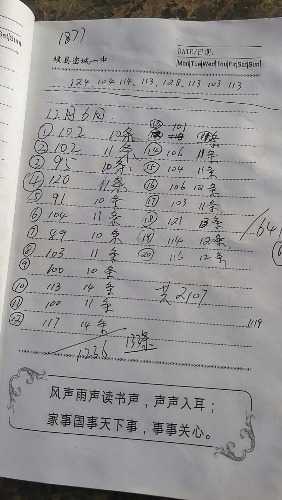 1877
DATE/日期:
Mon|Tue|Wed|Thu|Fri|Sat|Sun|
124 104 114、113、128、113 103 113
12月6日:
① 102 10条
② 102 11条
③ 93 10条
④ 120 11条
⑤ 91 10条
⑥ 104 11条
⑦ 89 10条
⑧ 103 11条
⑨ 100 10条
⑩ 113 14条
⑪ 100 11条
⑫ 117 14条
1236 133条
⑬ 101
⑭ 106 11条
⑮ 104 11条
⑯ 106 12条
⑰ 103 11条
⑱ 121 13条
⑲ 114 12条
⑳ 115 12条
共2107
1119
风声雨声读书声，声声入耳；
家事国事天下事，事事关心。